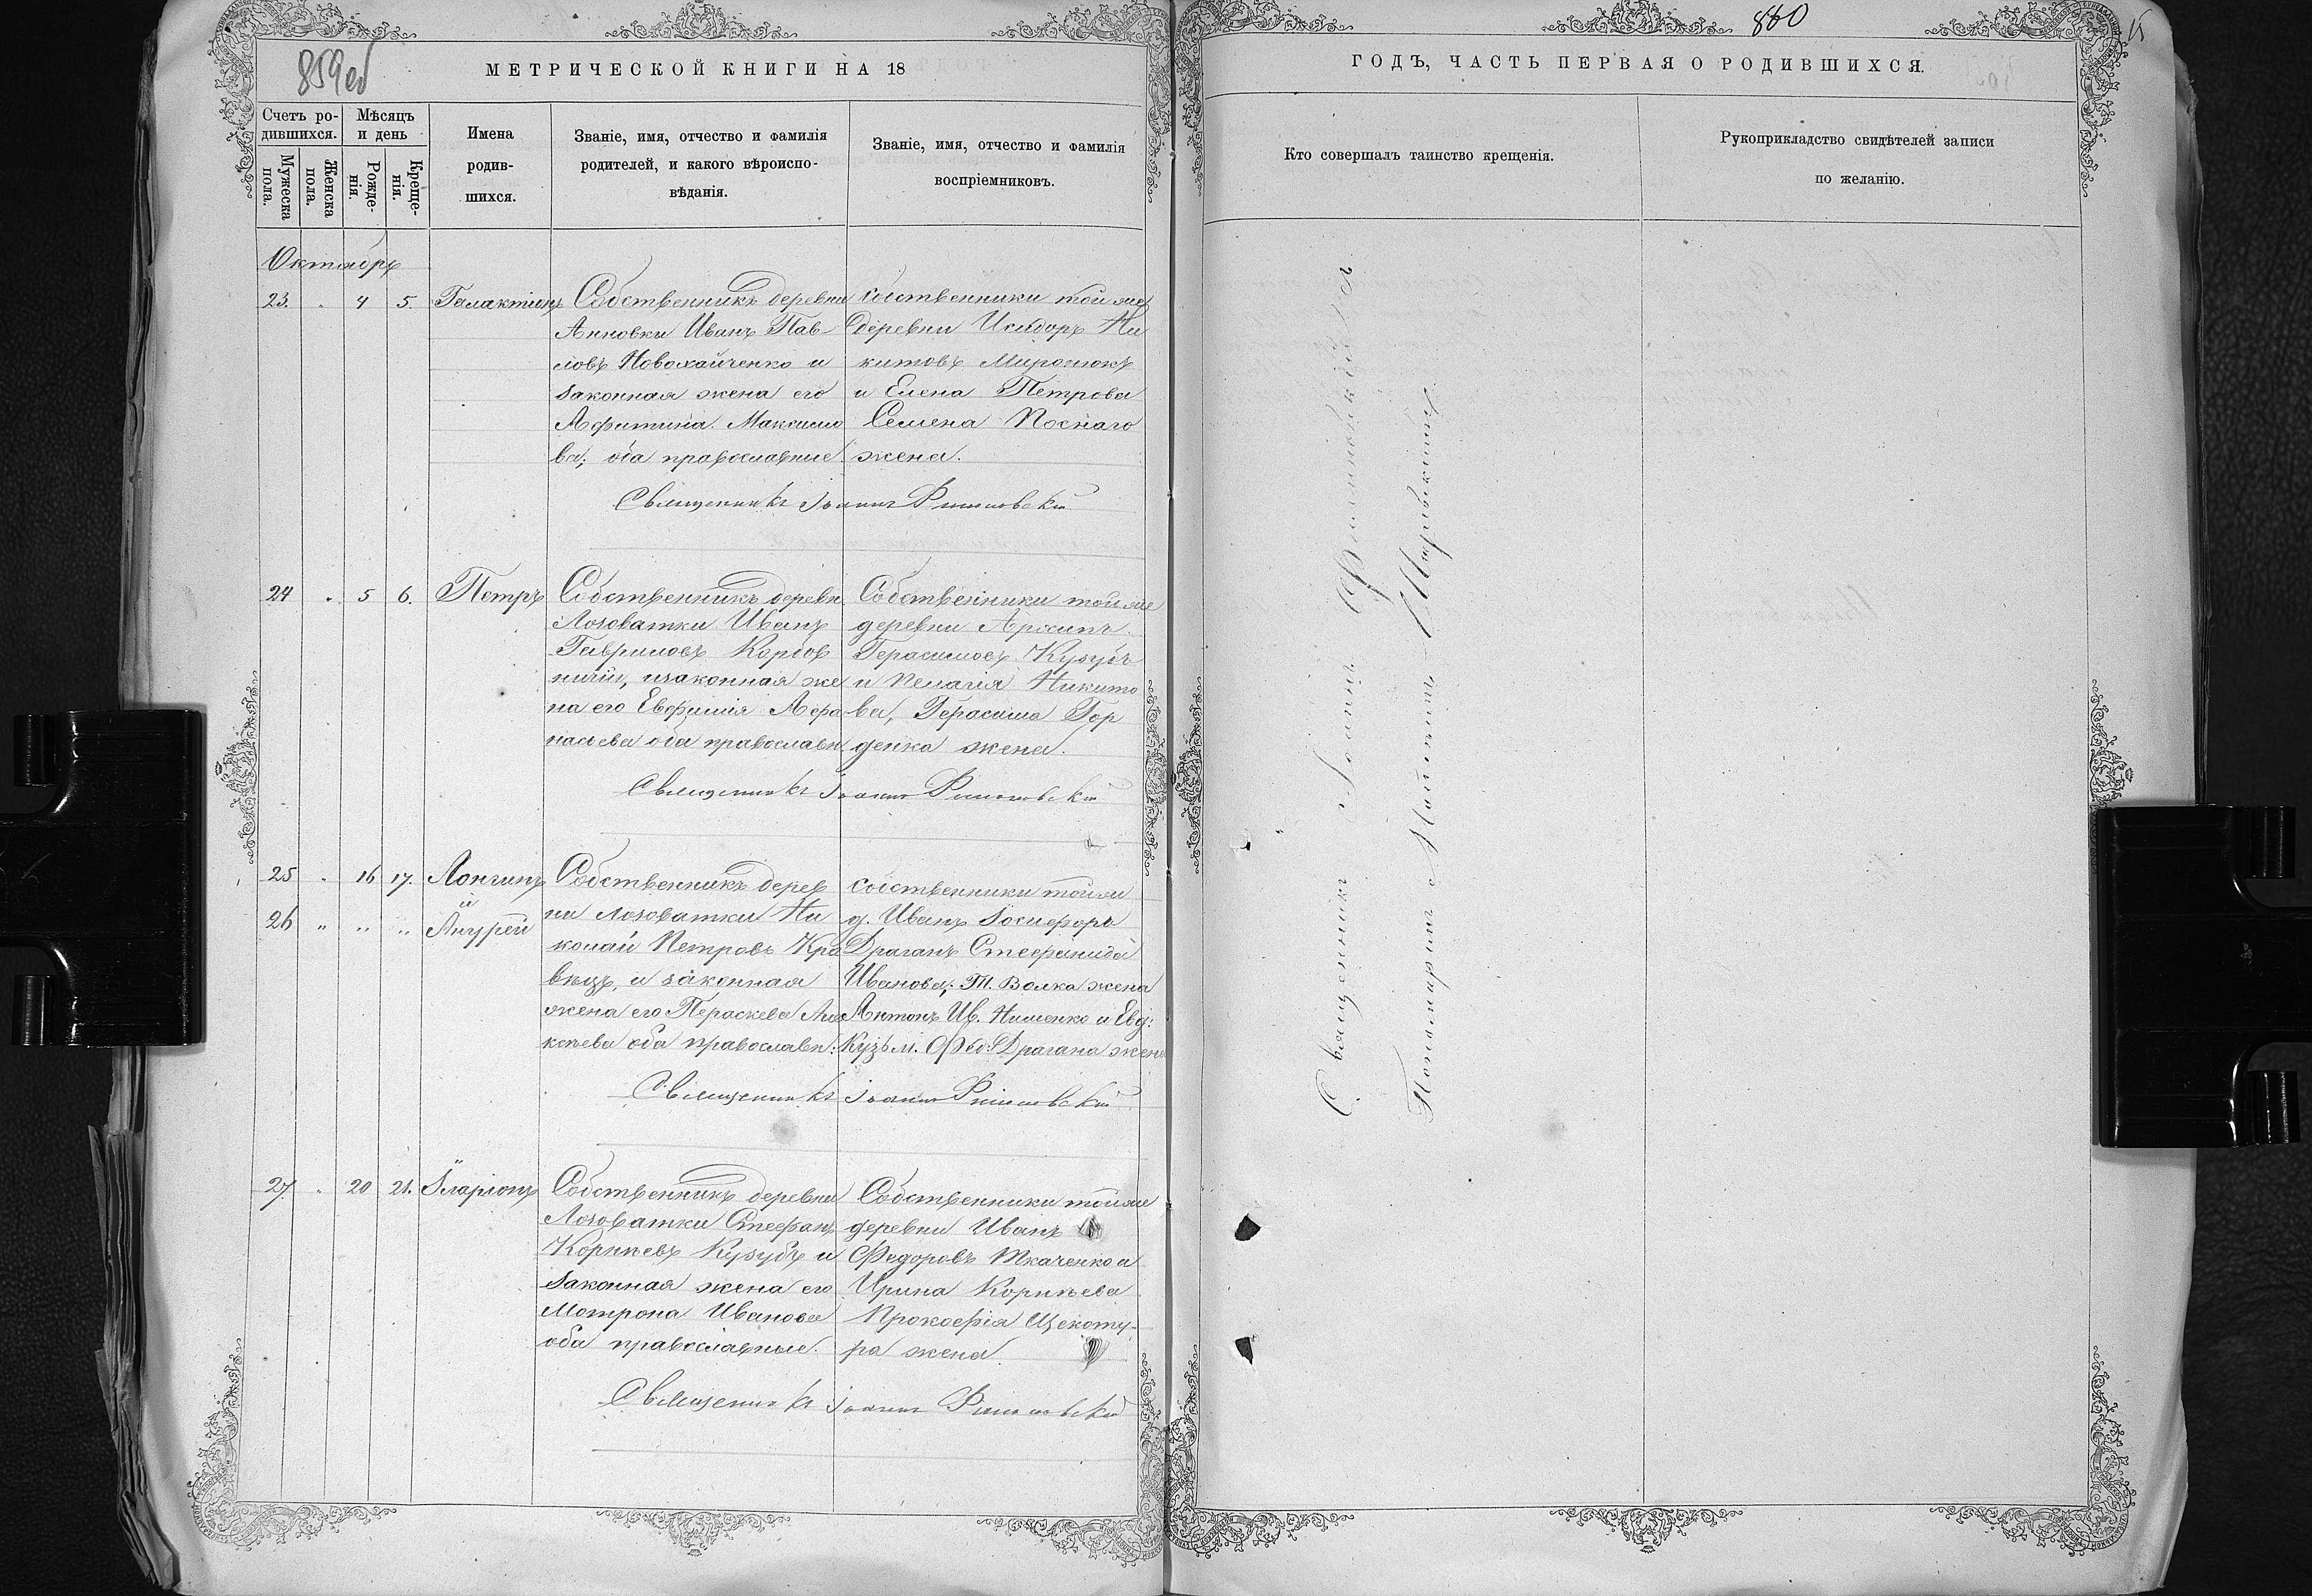 859об
МЕТРИЧЕСКОЙ КНИГИ НА 18
Счетъ ро-
дившихся.
Мѣсяцъ
и день
Мужеска
пола.
Женска
пола.
Рожде-
нія.
Креще-
нія.
Имена
родив-
шихся.
Званіе, имя, отчество и фамилія
родителей, и какого вѣроиспо-
вѣданія.
Званіе, имя, отчество и фамилія
воспріемниковъ.
Октябрь
23. " 4 5. Галактіонъ
Собственникъ деревни
Анновки Иванъ Пав-
ловъ Новохайченко и
законная жена его
Максимо
ва; оба православные.
собственники той же
деревни Исидоръ Ни
китовъ Миронюкъ
и Елена Петрова
Семена Поснаго
жена.
Священникъ Іоаннъ
24 " 5 6. Петръ
Собственникъ деревн
Лозоватки Иванъ
Гавриловъ
и законная же
на его Евфимія Афа
насьева оба православн.
Собственники той же
деревни
Герасимовъ Кузубъ
и Пелагія Никито
ва, Герасима Гор
денка жена.
Священникъ Іоаннъ
25 " 16 17. Лонгинъ
и
26 " " " Андрей
Собственникъ дерев
ни Лозоватки Ни
колай Петровъ Кра
вецъ, и законная
жена его Параскева Але
ксѣева оба православн:
собственники той же
д. Иванъ
Драганъ Стефанида
Иванова, Т. Волка жена
Антонъ Ив. и Евд:
Кузьм. Фед: Драгана жена
Священникъ Іоаннъ
27. " 20 21. Іларіонъ
Собственникъ деревни
Лозоватки Стефанъ
Корнѣевъ Кузубъ и
законная жена его
Мотрона Иванова
оба православные.
Собственники той же
деревни Иванъ
Федоровъ Ткаченко и
Ирина Корнѣева
Прокофія Щекоту-
ра жена.
Священникъ Іоаннъ
860
ГОДЪ, ЧАСТЬ ПЕРВАЯ О РОДИВШИХСЯ.
Кто совершалъ таинство крещенія.
Рукоприкладство свидѣтелей записи
по желанію.
Священникъ Іоаннъ
Пономарь